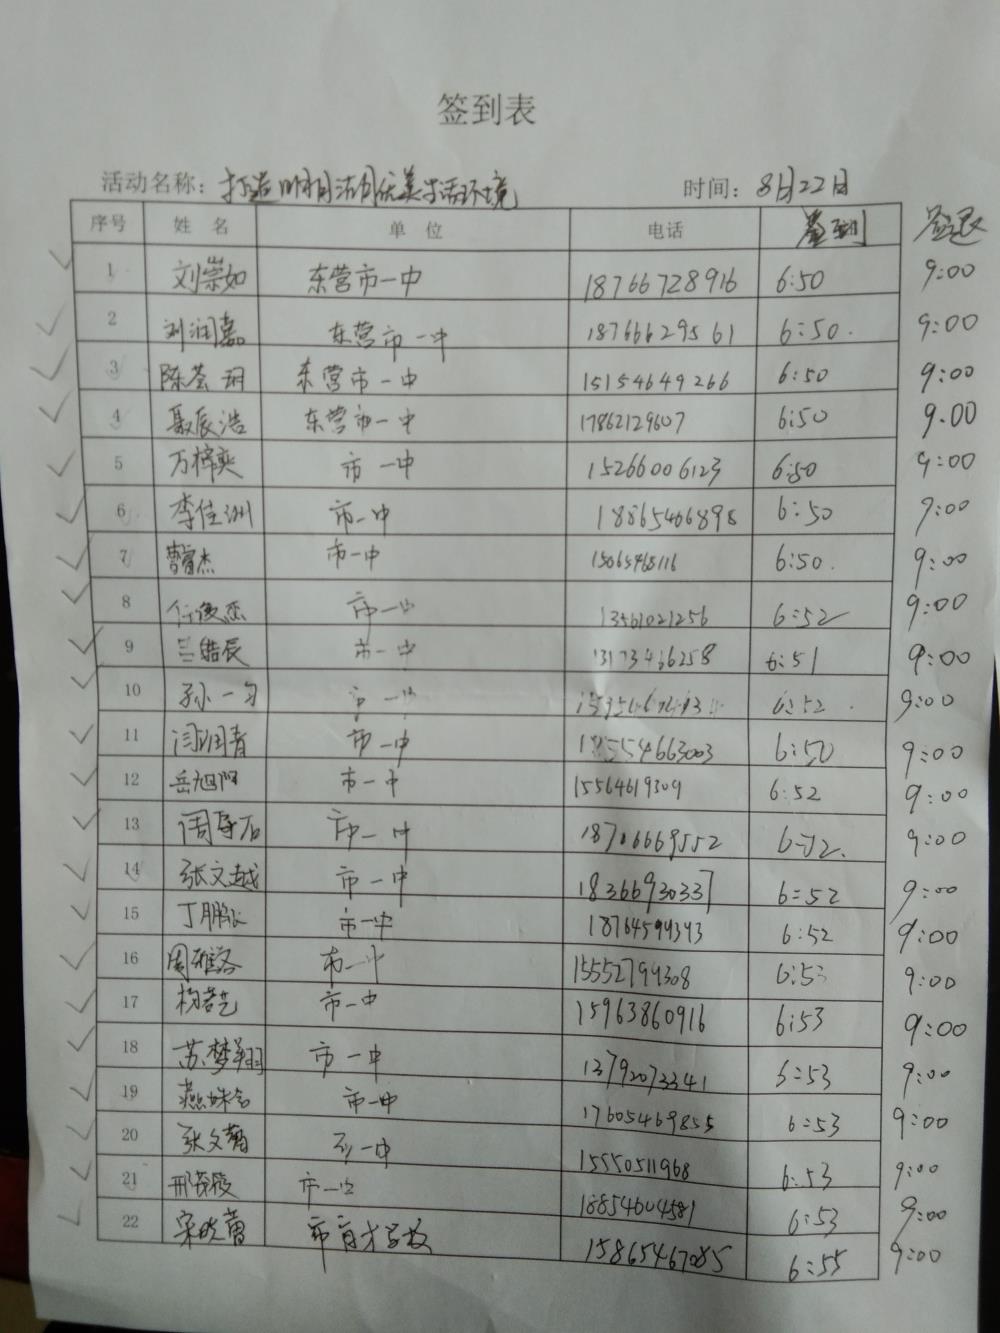 签到表
活动名称：打造明月湖优美生活环境 时间：8月22日
序号 姓名 单位 电话 签到 签退
1 刘崇如 东营市一中 18766728916 6:50 9:00
2 刘润嘉 东营市一中 18766629561 6:50. 9:00
3 陈荟玥 东营市一中 15154649266 6:50 9:00
4 聂辰浩 东营市一中 17862129607 6:50 9.00
5 万梓奕 市一中 15266006123 6:50 9:00
6 李佳洲 市一中 18865406898 6:50 9:00
7 杰 市一中 15065468116 6:50. 9:00
8 任俊杰 市一中 13561021256 6:52 9:00
9 兰皓辰 市一中 13173466258 6:51 9:00
10 孙一 市一中 6:52. 9:00
11 闫润青 市一中 185554663003 6:50 9:00
12 岳旭阳 市一中 15564619309 6:52 9:00
13 周 市一中 18706669552 6:52. 9:00
14 张文越 市一中 18366930337 6:52 9:00
15 丁鹏 市一中 18764599393 6:52 9:00
16 周雅洛 市一中 15552799308 6:53 9:00
17 杨若艺 市一中 15963860916 6:53 9:00
18 苏梦翔 市一中 13792073341 6:53 9:00
19 燕姝含 市一中 17605469855 6:53 9:00
20 张文菊 市一中 15550511968 6:53 9:00
21 邢 市一中 18854604581 6:53 9:00
22 宋晓蕾 市育才学校 15865467085 6:55 9:00